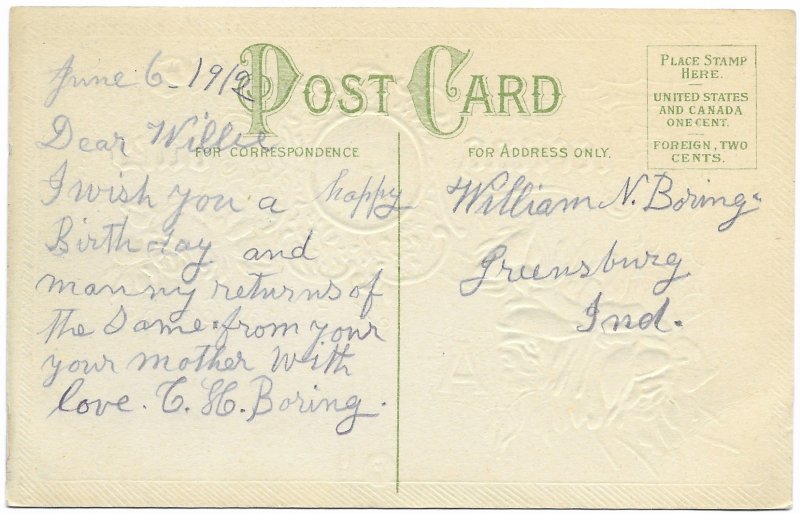 POST CARD
PLACE STAMP
HERE.
UNITED STATES
AND CANADA
ONE CENT.
FOREIGN, TWO
CENTS.
FOR CORRESPONDENCE
FOR ADDRESS ONLY.
June 6 - 1912
Dear Willie
I wish you a happy
Birthday and
manny returns of
the Same from your
your mother With
love. C. H. Boring.
William N. Boring
Greensburg
Ind.